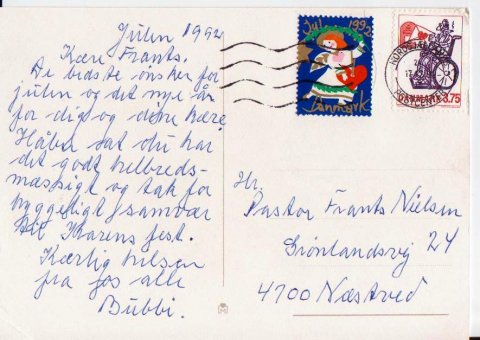 Julen 1992
Kære Frants.
De bedste ønsker for
julen og det nye år
for dig og dine kære.
Håber at du har
det godt helbreds-
mæssigt og tak for
hyggeligt samvær
til Karens fest.
Kærlig hilsen
fra os alle
Bubbi.
Jul 1992
Danmark
DANMARK 3.75
Hr.
Pastor Frants Nielsen
Grønlandsvej 24
4700 Næstved